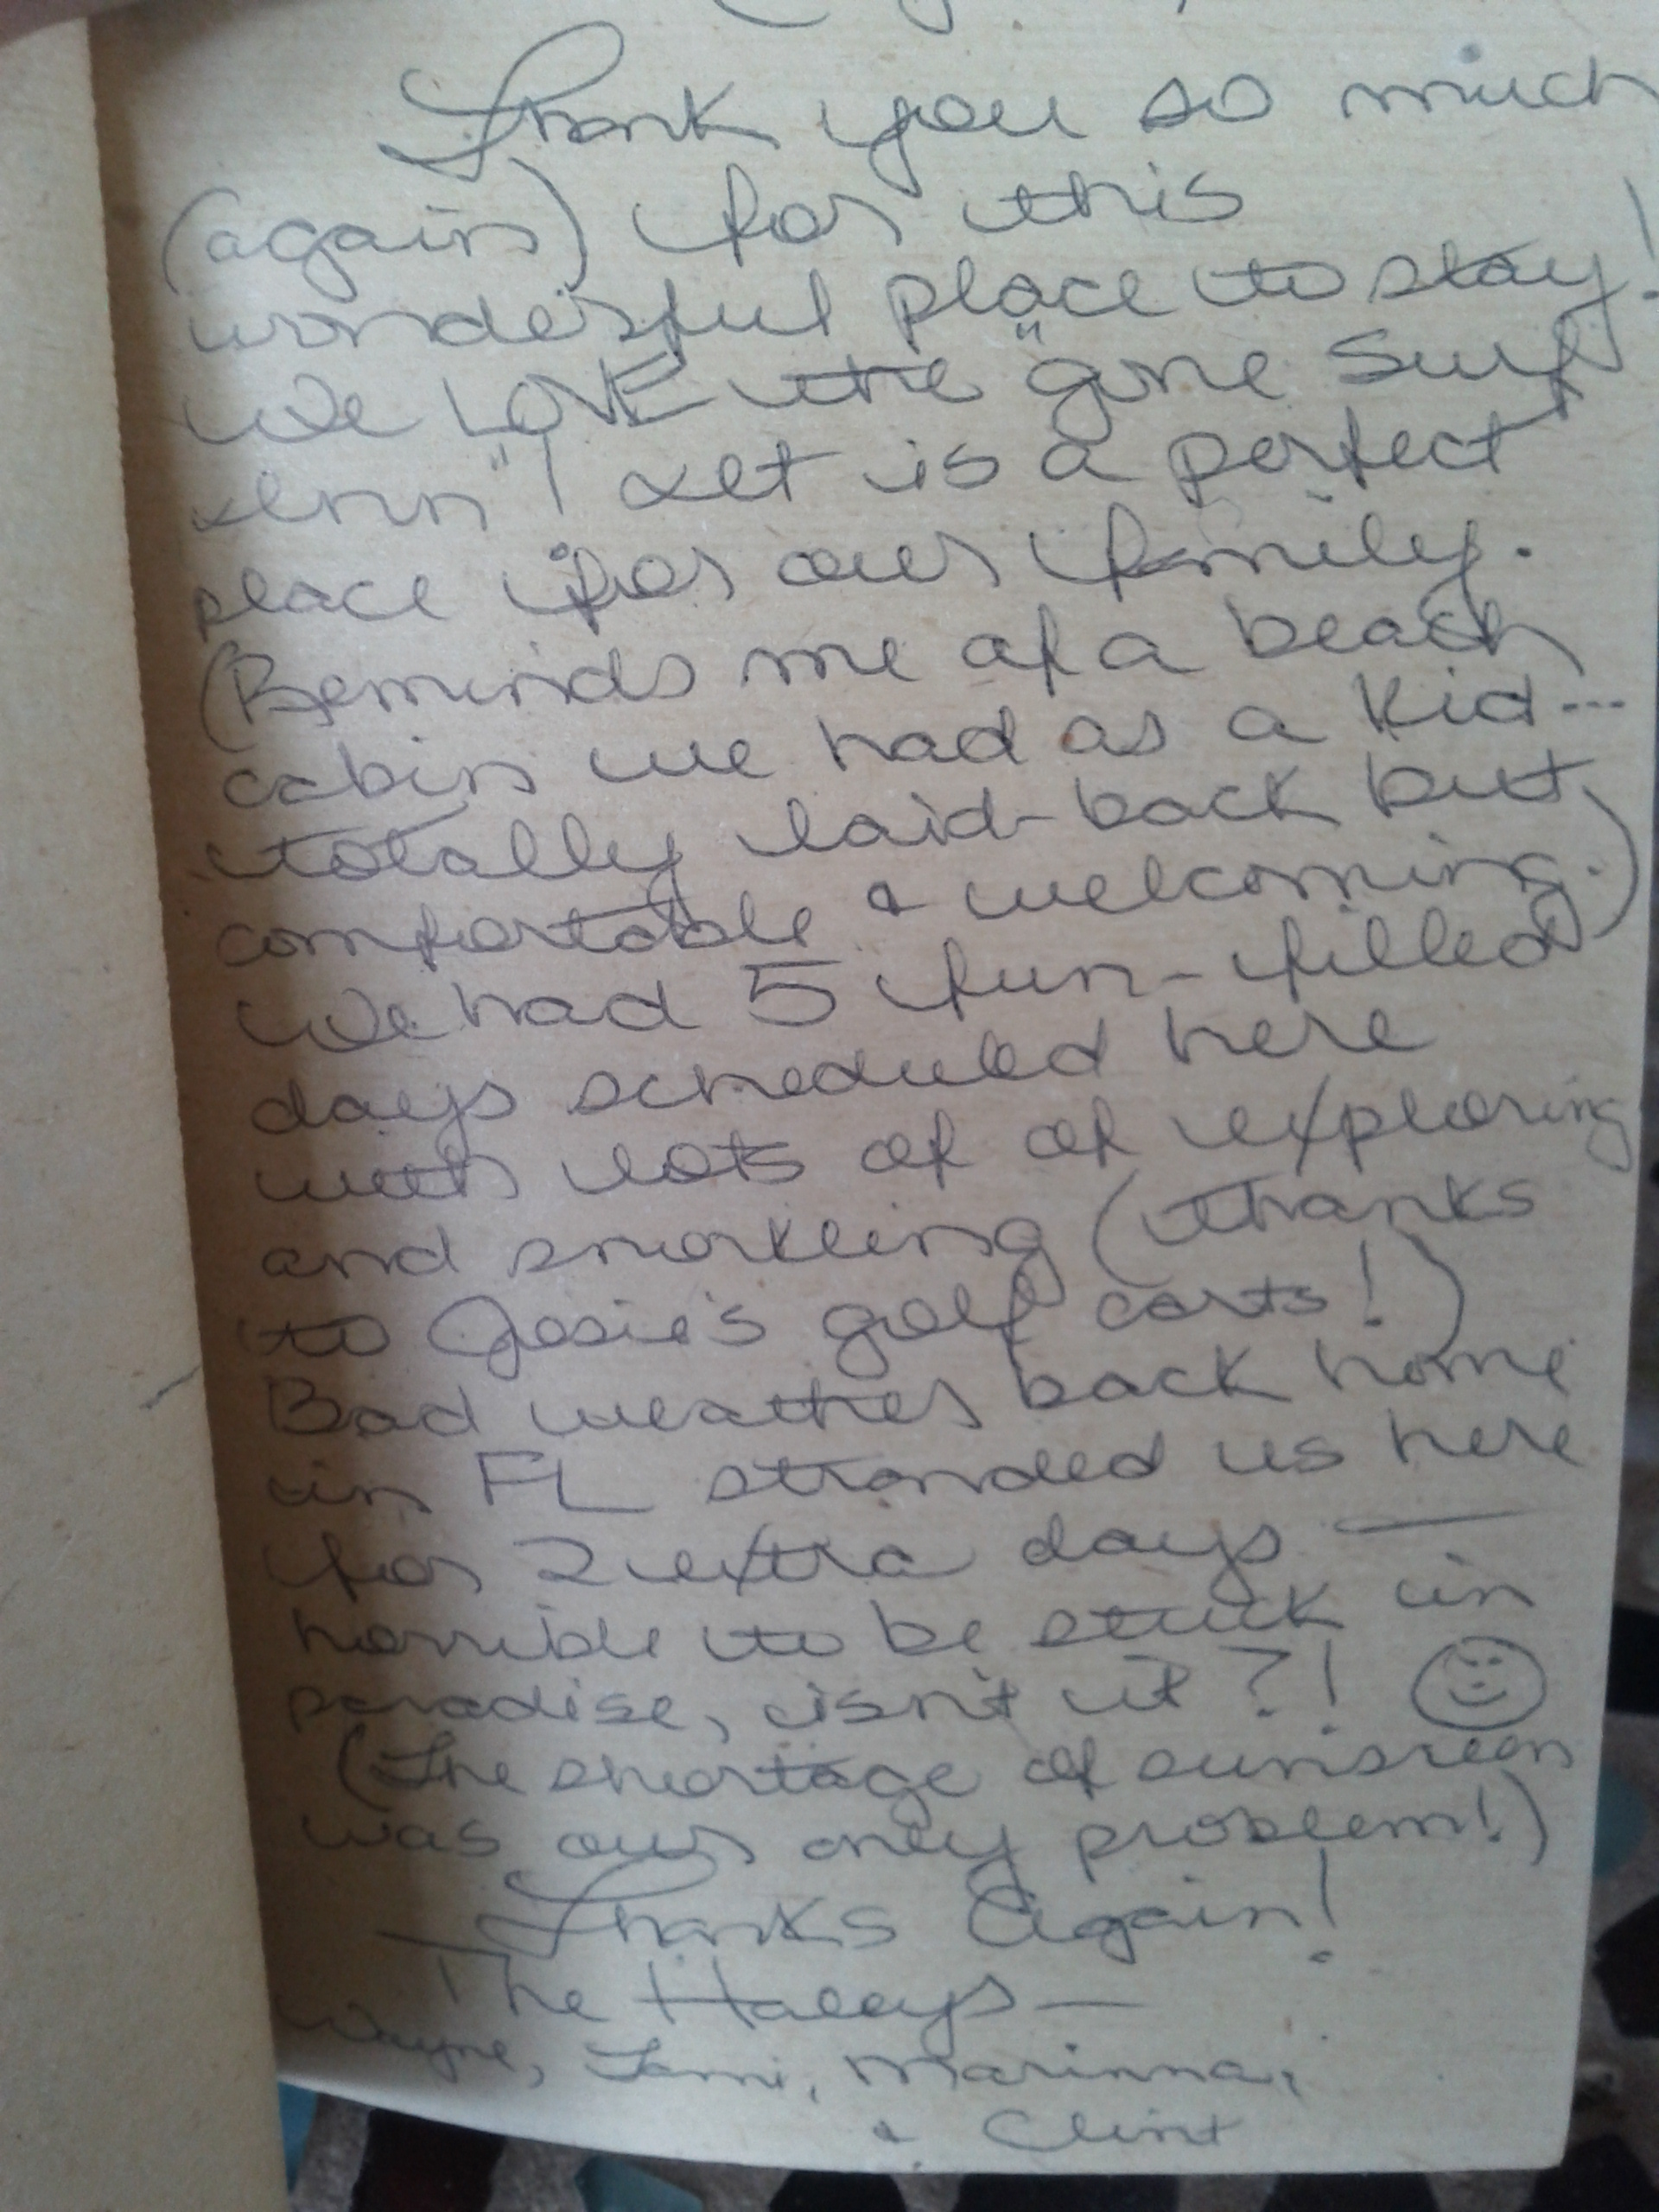 Thank you so much
(again) for this
wonderful place to stay!
We LOVE the "gone Surf
inn"! It is a perfect
place for our family.
(Reminds me of a beach
cabin we had as a kid...
totally laid-back but
comfortable & welcoming.)
We had 5 fun-filled
days scheduled here
with lots of of exploring
and snorkling (thanks
to Josie's golf carts!)
Bad weather back home
in FL stranded us here
for 2 extra days —
horrible to be stuck in
paradise, isn't it?!
(The shortage of sunscreen
was our only problem!)
Thanks Again!
The Haleys—
Wayne, Marinna,
& Clint